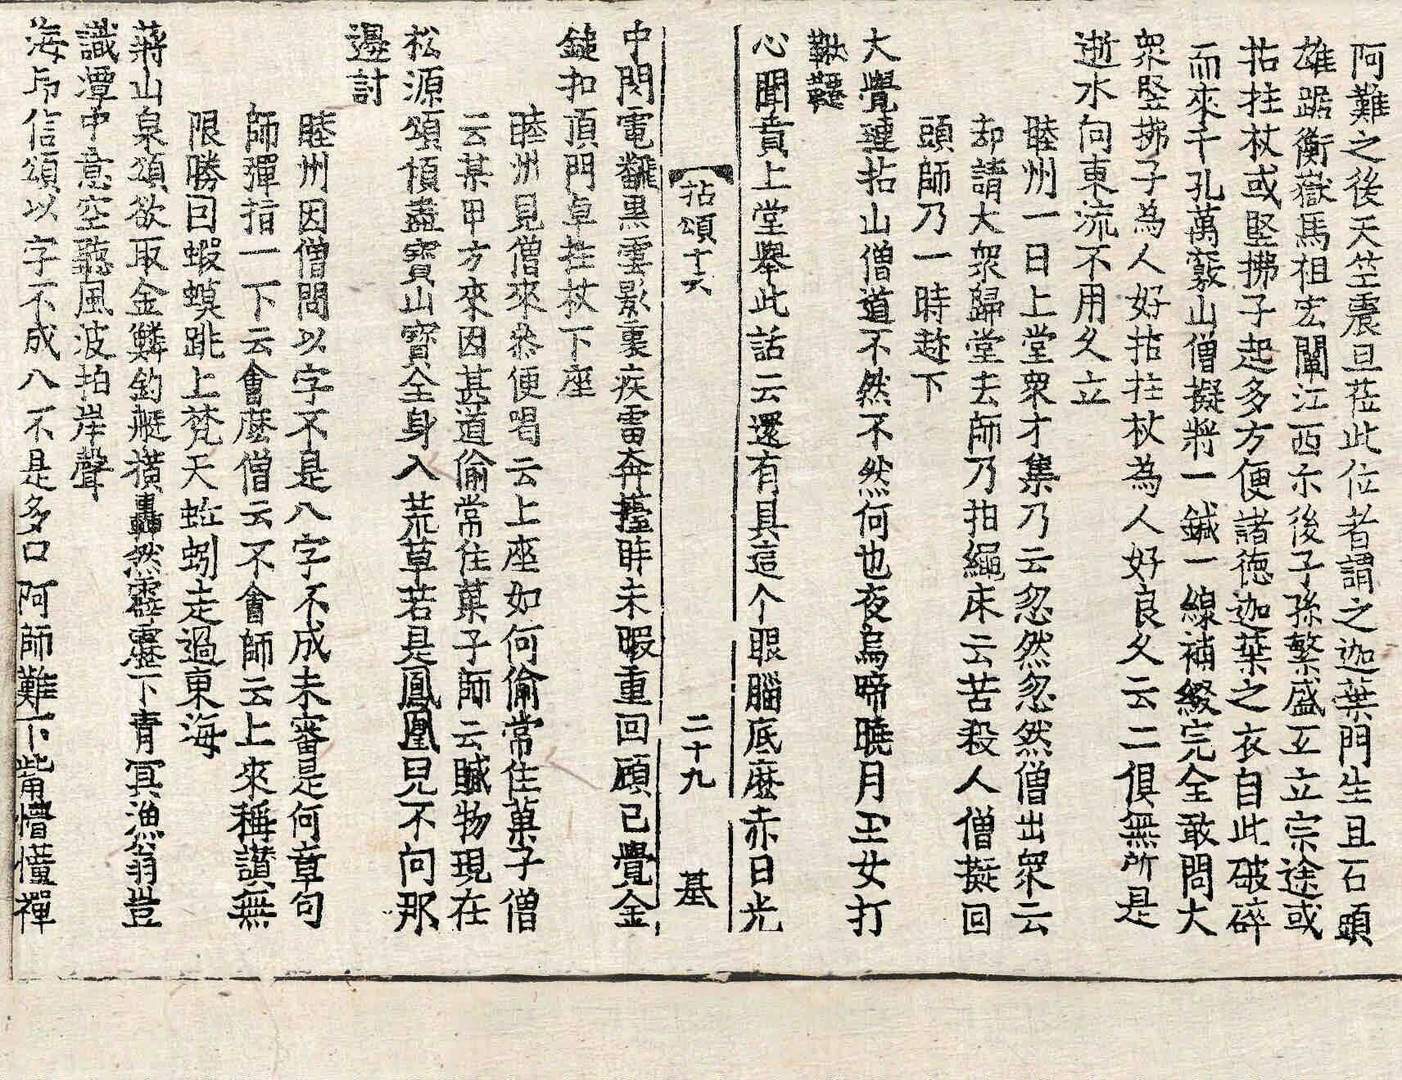 阿難之後天竺震旦莅此位者謂之迦葉門生且石頭
雄踞衡嶽馬祖宏闡江西尒後子孫繁盛互立宗途或
拈拄杖或竪拂子起多方便諸徳迦葉之衣自此破碎
而來千孔萬竅山僧擬將一鍼一線補綴完全敢問大
衆竪拂子為人好拈拄杖為人好良久云二俱無所是
逝水向東流不用久立
睦州一日上堂衆才集乃云忽然忽然僧出衆云
却請大衆歸堂去師乃拍繩床云苦殺人僧擬回
頭師乃一時趂下
大覺璉拈山僧道不然不然何也夜烏啼曉月玉女打
鞦韆
心聞賁上堂舉此話云還有具這个眼腦底麽赤日光
拈頌十六 二十九 基
中閃電飜黒雲影裏疾雷奔擡眸未暇重回頭已覺金
鎚扣頂門卓拄杖下座
睦州見僧來叅便喝云上座如何偷常住菓子僧
云某甲方來因甚道偷常住菓子師云贓物現在
松源頌傾盡寶山寶全身入荒草若是鳳凰兒不向那
邊討
睦州因僧問以字不是八字不成未審是何章句
師彈指一下云會麽僧云不會師云上來稱讃無
限勝回蝦蟆跳上梵天蚯蚓走過東海
蔣山泉頌欲取金鱗釣艇橫轟然霹靂下青冥漁翁豈
識潭中意空聽風波拍岸聲
海印信頌以字不成八不是多口阿師難下觜懵懂禪